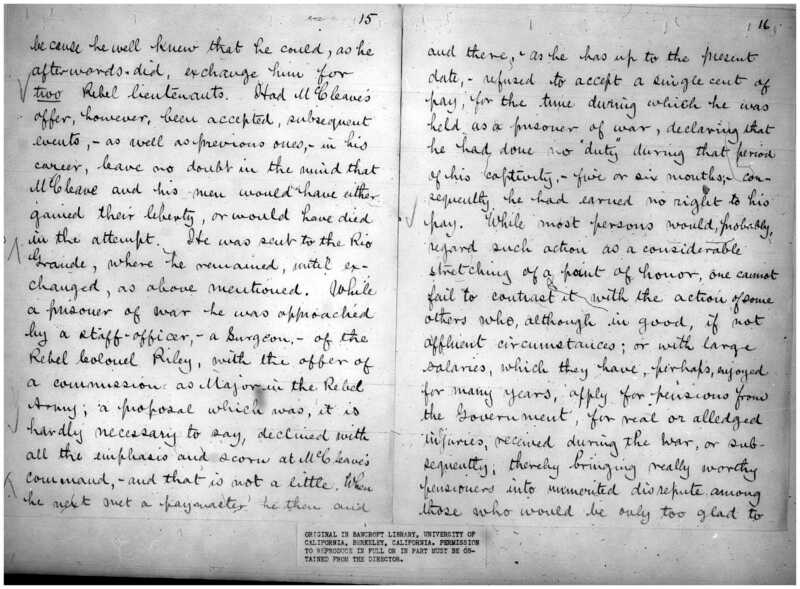 15
because he well knew that he could, as he
afterwards did, exchange him for
two Rebel lieutenants. Had McCleave's
offer, however, been accepted, subsequent
events, - as well as previous ones, - in his
career, leave no doubt in the mind that
McCleave and his men would have either
gained their liberty, or would have died
in the attempt. He was sent to the Rio
Grande, where he remained, until ex-
changed, as above mentioned. While
a prisoner of war he was approached
by a staff-officer, - a Surgeon, - of the
Rebel Colonel Riley, with the offer of
a commission as Major in the Rebel
Army; a proposal which was, it is
hardly necessary to say, declined with
all the emphasis and scorn at McCleave's
command, - and that is not a little. When
he next met a paymaster he then and
16
and there, - as he has up to the present
date, - refused to accept a single cent of
pay, for the time during which he was
held as a prisoner of war, declaring that
he had done no "duty" during that period
of his captivity, - five or six months; - con-
sequently he had earned no right to his
pay. While most persons would, probably,
regard such action as a considerable
stretching of a point of honor, one cannot
fail to contrast it with the action of some
others who, although in good, if not
affluent circumstances; or with large
salaries, which they have, perhaps, enjoyed
for many years, apply for pensions from
the Government, for real or alledged
injuries, received during the war, or sub-
sequently; thereby bringing really worthy
pensioners into unmerited disrepute among
those who would be only too glad to
ORIGINAL IN BANCROFT LIBRARY, UNIVERSITY OF
CALIFORNIA, BERKELEY, CALIFORNIA. PERMISSION
TO REPRODUCE IN FULL OR IN PART MUST BE OB-
TAINED FROM THE DIRECTOR.